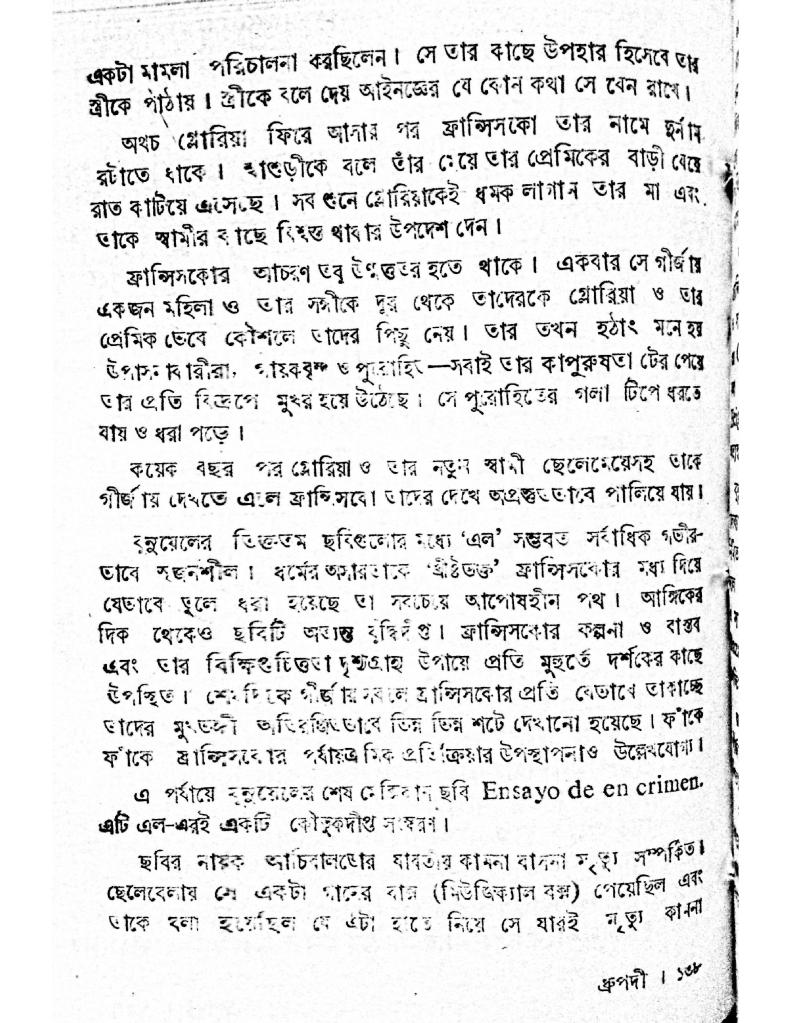 একটা মামলা পরিচালনা করছিলেন। সে তার কাছে উপহার হিসেবে তার
স্ত্রীকে পাঠায়। স্ত্রীকে বলে দেয় আইনজ্ঞের যে কোন কথা সে যেন রাখে।
অথচ গ্লোরিয়া ফিরে আসার পর ফ্রান্সিসকো তার নামে দুর্নাম
রটাতে থাকে। শাশুড়ীকে বলে তাঁর মেয়ে তার প্রেমিকের বাড়ী যেয়ে
রাত কাটিয়ে এসেছে। সব শুনে গ্লোরিয়াকেই ধমক লাগান তার মা এবং
তাকে স্বামীর কাছে বিশ্বস্ত থাকার উপদেশ দেন।
ফ্রান্সিসকোর আচরণ তবু উন্মত্ততর হতে থাকে। একবার সে গীর্জায়
একজন মহিলা ও তার সঙ্গীকে দূর থেকে তাদেরকে গ্লোরিয়া ও তার
প্রেমিক ভেবে কৌশলে তাদের পিছু নেয়। তার তখন হঠাৎ মনে হয়
উপাসনাকারীরা, গায়কবৃন্দ ও পুরোহিত—সবাই তার কাপুরুষতা টের পেয়ে
তার প্রতি বিদ্রূপে মুখর হয়ে উঠেছে। সে পুরোহিতের গলা টিপে ধরতে
যায় ও ধরা পড়ে।
কয়েক বছর পর গ্লোরিয়া ও তার নতুন স্বামী ছেলেমেয়েসহ তাকে
গীর্জায় দেখতে এলে ফ্রান্সিসকো তাদের দেখে অপ্রস্তুতভাবে পালিয়ে যায়।
বুনুয়েলের তিক্ততম ছবিগুলোর মধ্যে ‘এল’ সম্ভবত সর্বাধিক গভীর-
ভাবে সৃজনশীল। ধর্মের অসারতাকে ‘খ্রীষ্টভক্ত’ ফ্রান্সিসকোর মধ্য দিয়ে
যেভাবে তুলে ধরা হয়েছে তা সবচেয়ে আপোষহীন পথ। আঙ্গিকের
দিক থেকেও ছবিটি অত্যন্ত বুদ্ধিদীপ্ত। ফ্রান্সিসকোর কল্পনা ও বাস্তব
এবং তার বিক্ষিপ্তচিত্ততা দৃশ্যগ্রাহ্য উপায়ে প্রতি মুহূর্তে দর্শকের কাছে
উপস্থিত। শেষদিকে গীর্জায় সকলে ফ্রান্সিসকোর প্রতি যেভাবে তাকাচ্ছে
তাদের মুখভঙ্গী অতিরঞ্জিতভাবে ভিন্ন ভিন্ন শটে দেখানো হয়েছে। ফাঁকে
ফাঁকে ফ্রান্সিসকোর পর্যায়ক্রমিক প্রতিক্রিয়ার উপস্থাপনাও উল্লেখযোগ্য।
এ পর্যায়ে বুনুয়েলের শেষ মেক্সিকান ছবি Ensayo de en crimen.
এটি এল-এরই একটি কৌতুকদীপ্ত সংস্করণ।
ছবির নায়ক আর্চিবালডোর যাবতীয় কামনা বাসনা মৃত্যু সম্পর্কিত।
ছেলেবেলায় সে একটা গানের বাক্স (মিউজিক্যাল বক্স) পেয়েছিল এবং
তাকে বলা হয়েছিল যে এটা হাতে নিয়ে সে যারই মৃত্যু কামনা
ধ্রুপদী । ১৩৮